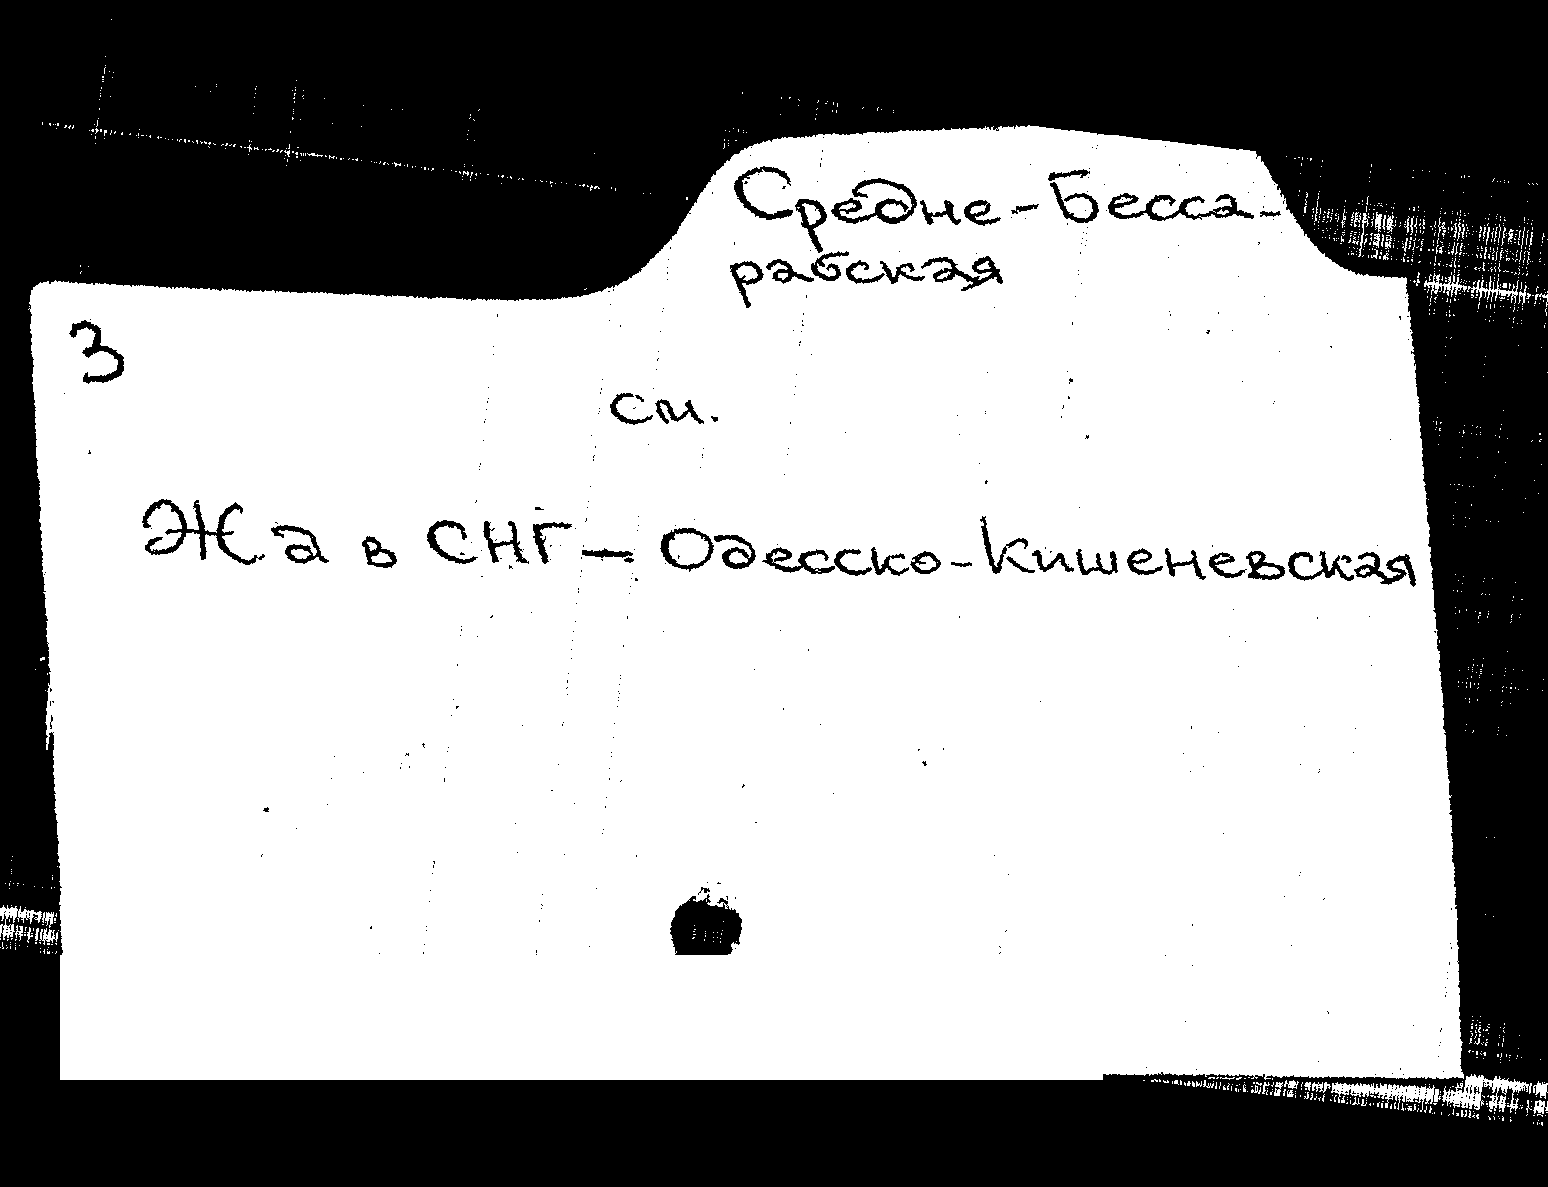 Средне-Бесса-
рабская
3
см.
Ж. д в СНГ — Одесско-Кишеневская